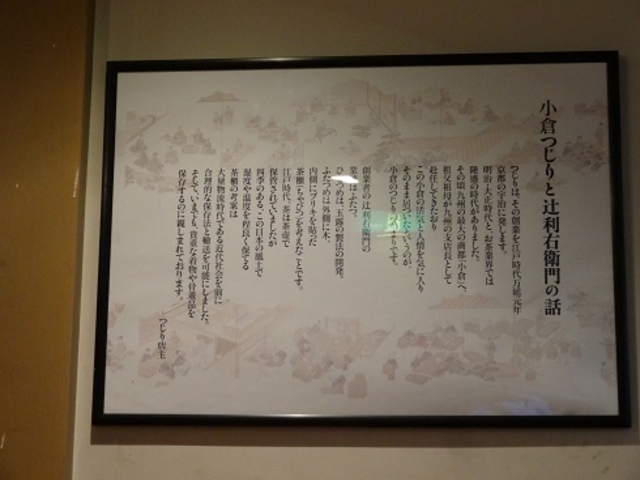 小倉つじりと辻利右衛門の話
つじりは、その創業を江戸時代万延元年
京都の宇治に発します。
明治・大正時代と、お茶業界では
隆盛の時代がありました。
その頃、九州の最大の商都「小倉」へ、
祖父、祖母が九州の支店長として
赴任してきたおり
この小倉の活気と人情を気に入り
そのまま居ついたというのが、
小倉のつじりの始まりです。
創業者の辻利右衛門の
業績はふたつ。
ひとつめは、玉露の製法の開発。
ふたつめは外側に木、
内側にブリキを貼った
茶櫃(ちゃびつ)を考えたことです。
江戸時代、茶は茶壺で
保管されていましたが
四季のある、この日本の風土で
湿度や温度を程良く保てる
茶櫃の考案は
大量物流時代である近代社会を前に
合理的な保存法と輸送を可能にしました。
そして、いまでも、貴重な着物や骨董品を
保存するのに親しまれております。
つじり店主